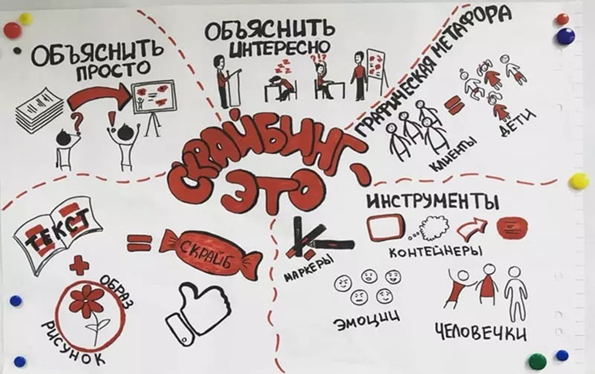 ОБЪЯСНИТЬ
ПРОСТО
ОБЪЯСНИТЬ
ИНТЕРЕСНО
ГРАФИЧЕСКАЯ МЕТАФОРА
КЛИЕНТЫ
=
ДЕТИ
? !
!?!
СКРАЙБИНГ,
ЭТО
ТЕКСТ
+
ОБРАЗ
РИСУНОК
=
СКРАЙБ
ИНСТРУМЕНТЫ
МАРКЕРЫ
КОНТЕЙНЕРЫ
ЭМОЦИИ
ЧЕЛОВЕЧКИ